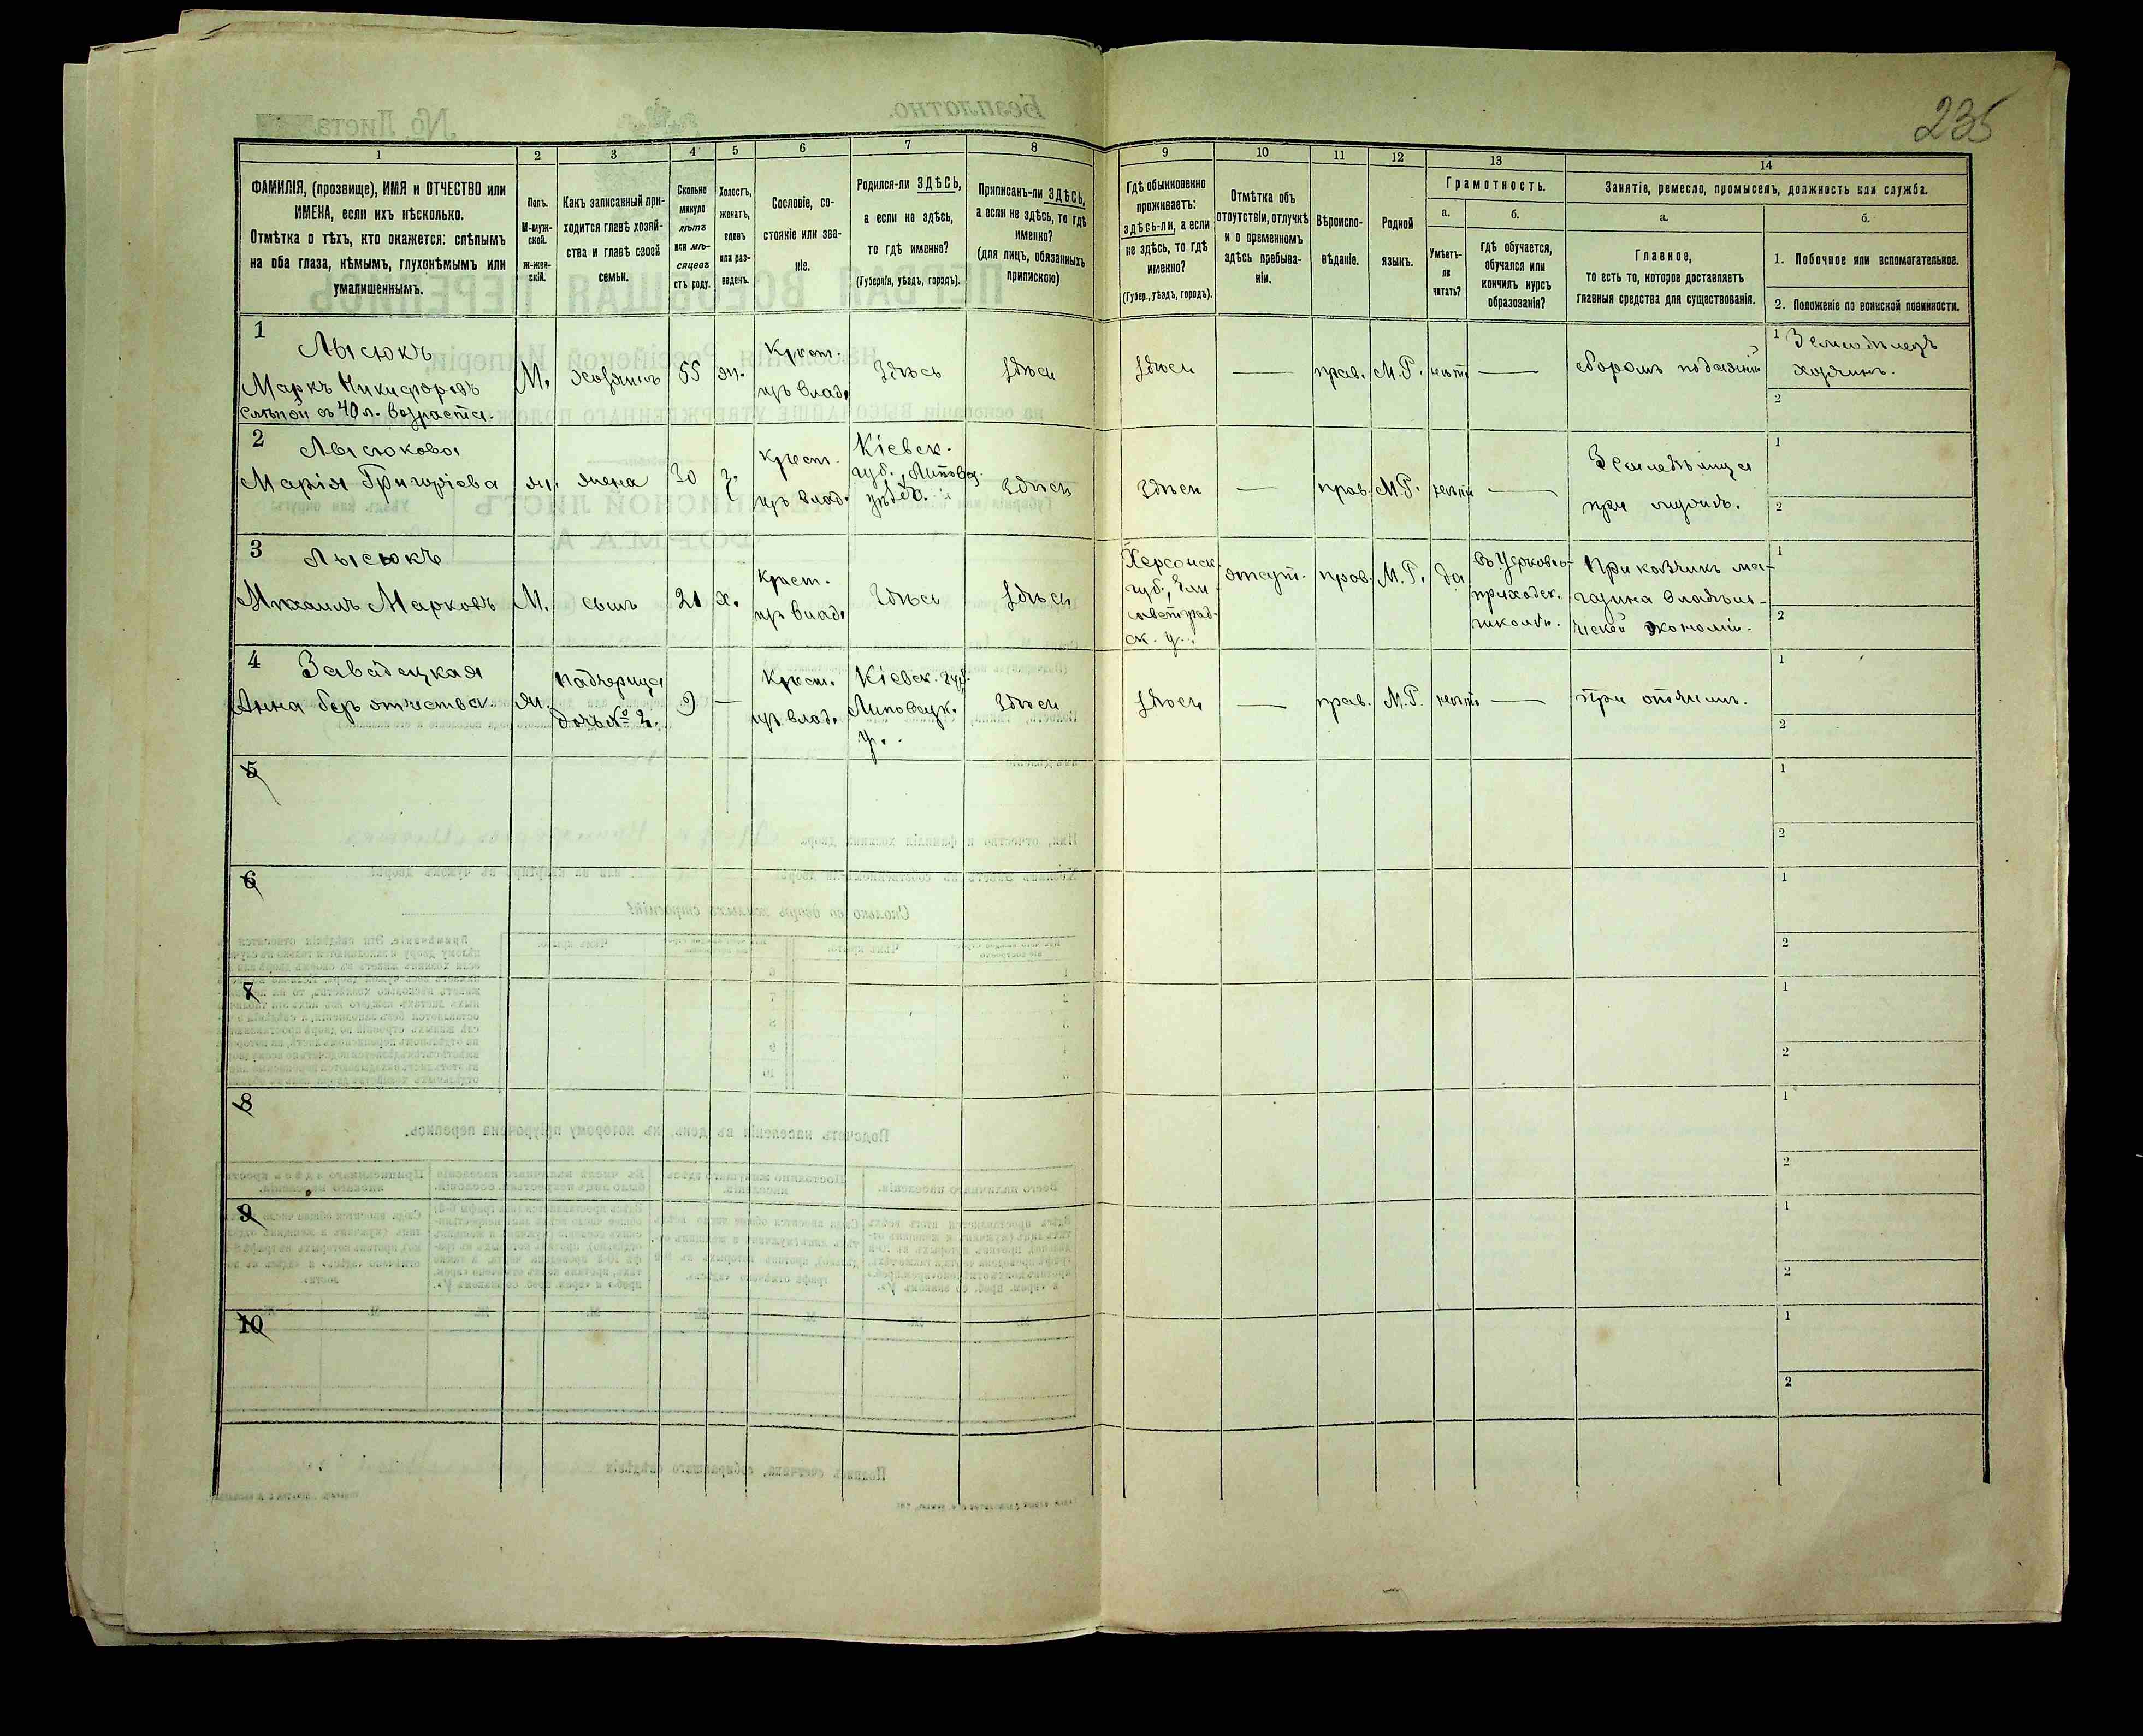 235
1
2
3
4
5
6
7
8
9
10
11
12
13
14
ФАМИЛІЯ, (прозвище), ИМЯ и ОТЧЕСТВО или
ИМЕНА, если ихъ нѣсколько.
Отмѣтка о тѣхъ, кто окажется: слѣпымъ
на оба глаза, нѣмымъ, глухонѣмымъ или
умалишеннымъ.
Полъ.
М-муж-
ской.
ж-жен-
скій.
Какъ записанный при-
ходится главѣ хозяй-
ства и главѣ своей
семьи.
Сколько
минуло
лѣтъ
или мѣ-
сяцевъ
отъ роду.
Холостъ,
женатъ,
вдовъ
или раз-
веденъ.
Сословіе, со-
стояніе или зва-
ніе.
Родился-ли ЗДѢСЬ,
а если не здѣсь,
то гдѣ именно?
(Губернія, уѣздъ, городъ).
Приписанъ-ли ЗДѢСЬ,
а если не здѣсь, то гдѣ
именно?
(для лицъ, обязанныхъ
припискою)
Гдѣ обыкновенно
проживаетъ:
здѣсь-ли, а если
не здѣсь, то гдѣ
именно?
(Губер., уѣздъ, городъ).
Отмѣтка объ
отсутствіи, отлучкѣ
и о временномъ
здѣсь пребыва-
ніи.
Вѣроиспо-
вѣданіе.
Родной
языкъ.
Грамотность.
а.
б.
Умѣетъ-
ли
читать?
гдѣ обучается,
обучался или
кончилъ курсъ
образованія?
Занятіе, ремесло, промыселъ, должность или служба.
а.
б.
Главное,
то есть то, которое доставляетъ
главныя средства для существованія.
1. Побочное или вспомогательное.
2. Положеніе по воинской повинности.
1
Лысюкъ
Маркъ Никифоровъ
Слѣпой съ 40 л. возраста.
М.
хозяинъ
55
ж.
Крест.
изъ влад.
Здѣсь
Здѣсь
Здѣсь
—
прав.
М.Р.
нѣтъ
—
сборомъ подаяній
1 Земледѣлецъ
хозяинъ.
2
2
Лысюкова
Марія Григоріева
ж.
жена
30
з.
Крест.
изъ влад.
Кіевск.
губ., Липовец.
уѣзд.
Здѣсь
Здѣсь
—
прав.
М.Р.
нѣтъ
—
Земледѣлица
при мужѣ.
1
2
3
Лысюкъ
Михаилъ Марковъ
М.
сынъ
21
х.
Крест.
изъ влад.
Здѣсь
Здѣсь
Херсонск.
губ., Ели-
саветград-
ск. у.
отсут.
прав.
М.Р.
да
Въ Церковно-
приходск.
школѣ.
Приказчикъ ма-
газина владѣль-
ческой экономіи.
1
2
4
Завадецкая
Анна безъ отчества.
ж.
Падчерица
дочь № 2.
9
—
Крест.
изъ влад.
Кіевск. губ.
Липовецк.
у.
Здѣсь
Здѣсь
—
прав.
М.Р.
нѣтъ
—
При отчимѣ.
1
2
5
1
2
6
1
2
7
1
2
8
1
2
9
1
2
10
1
2